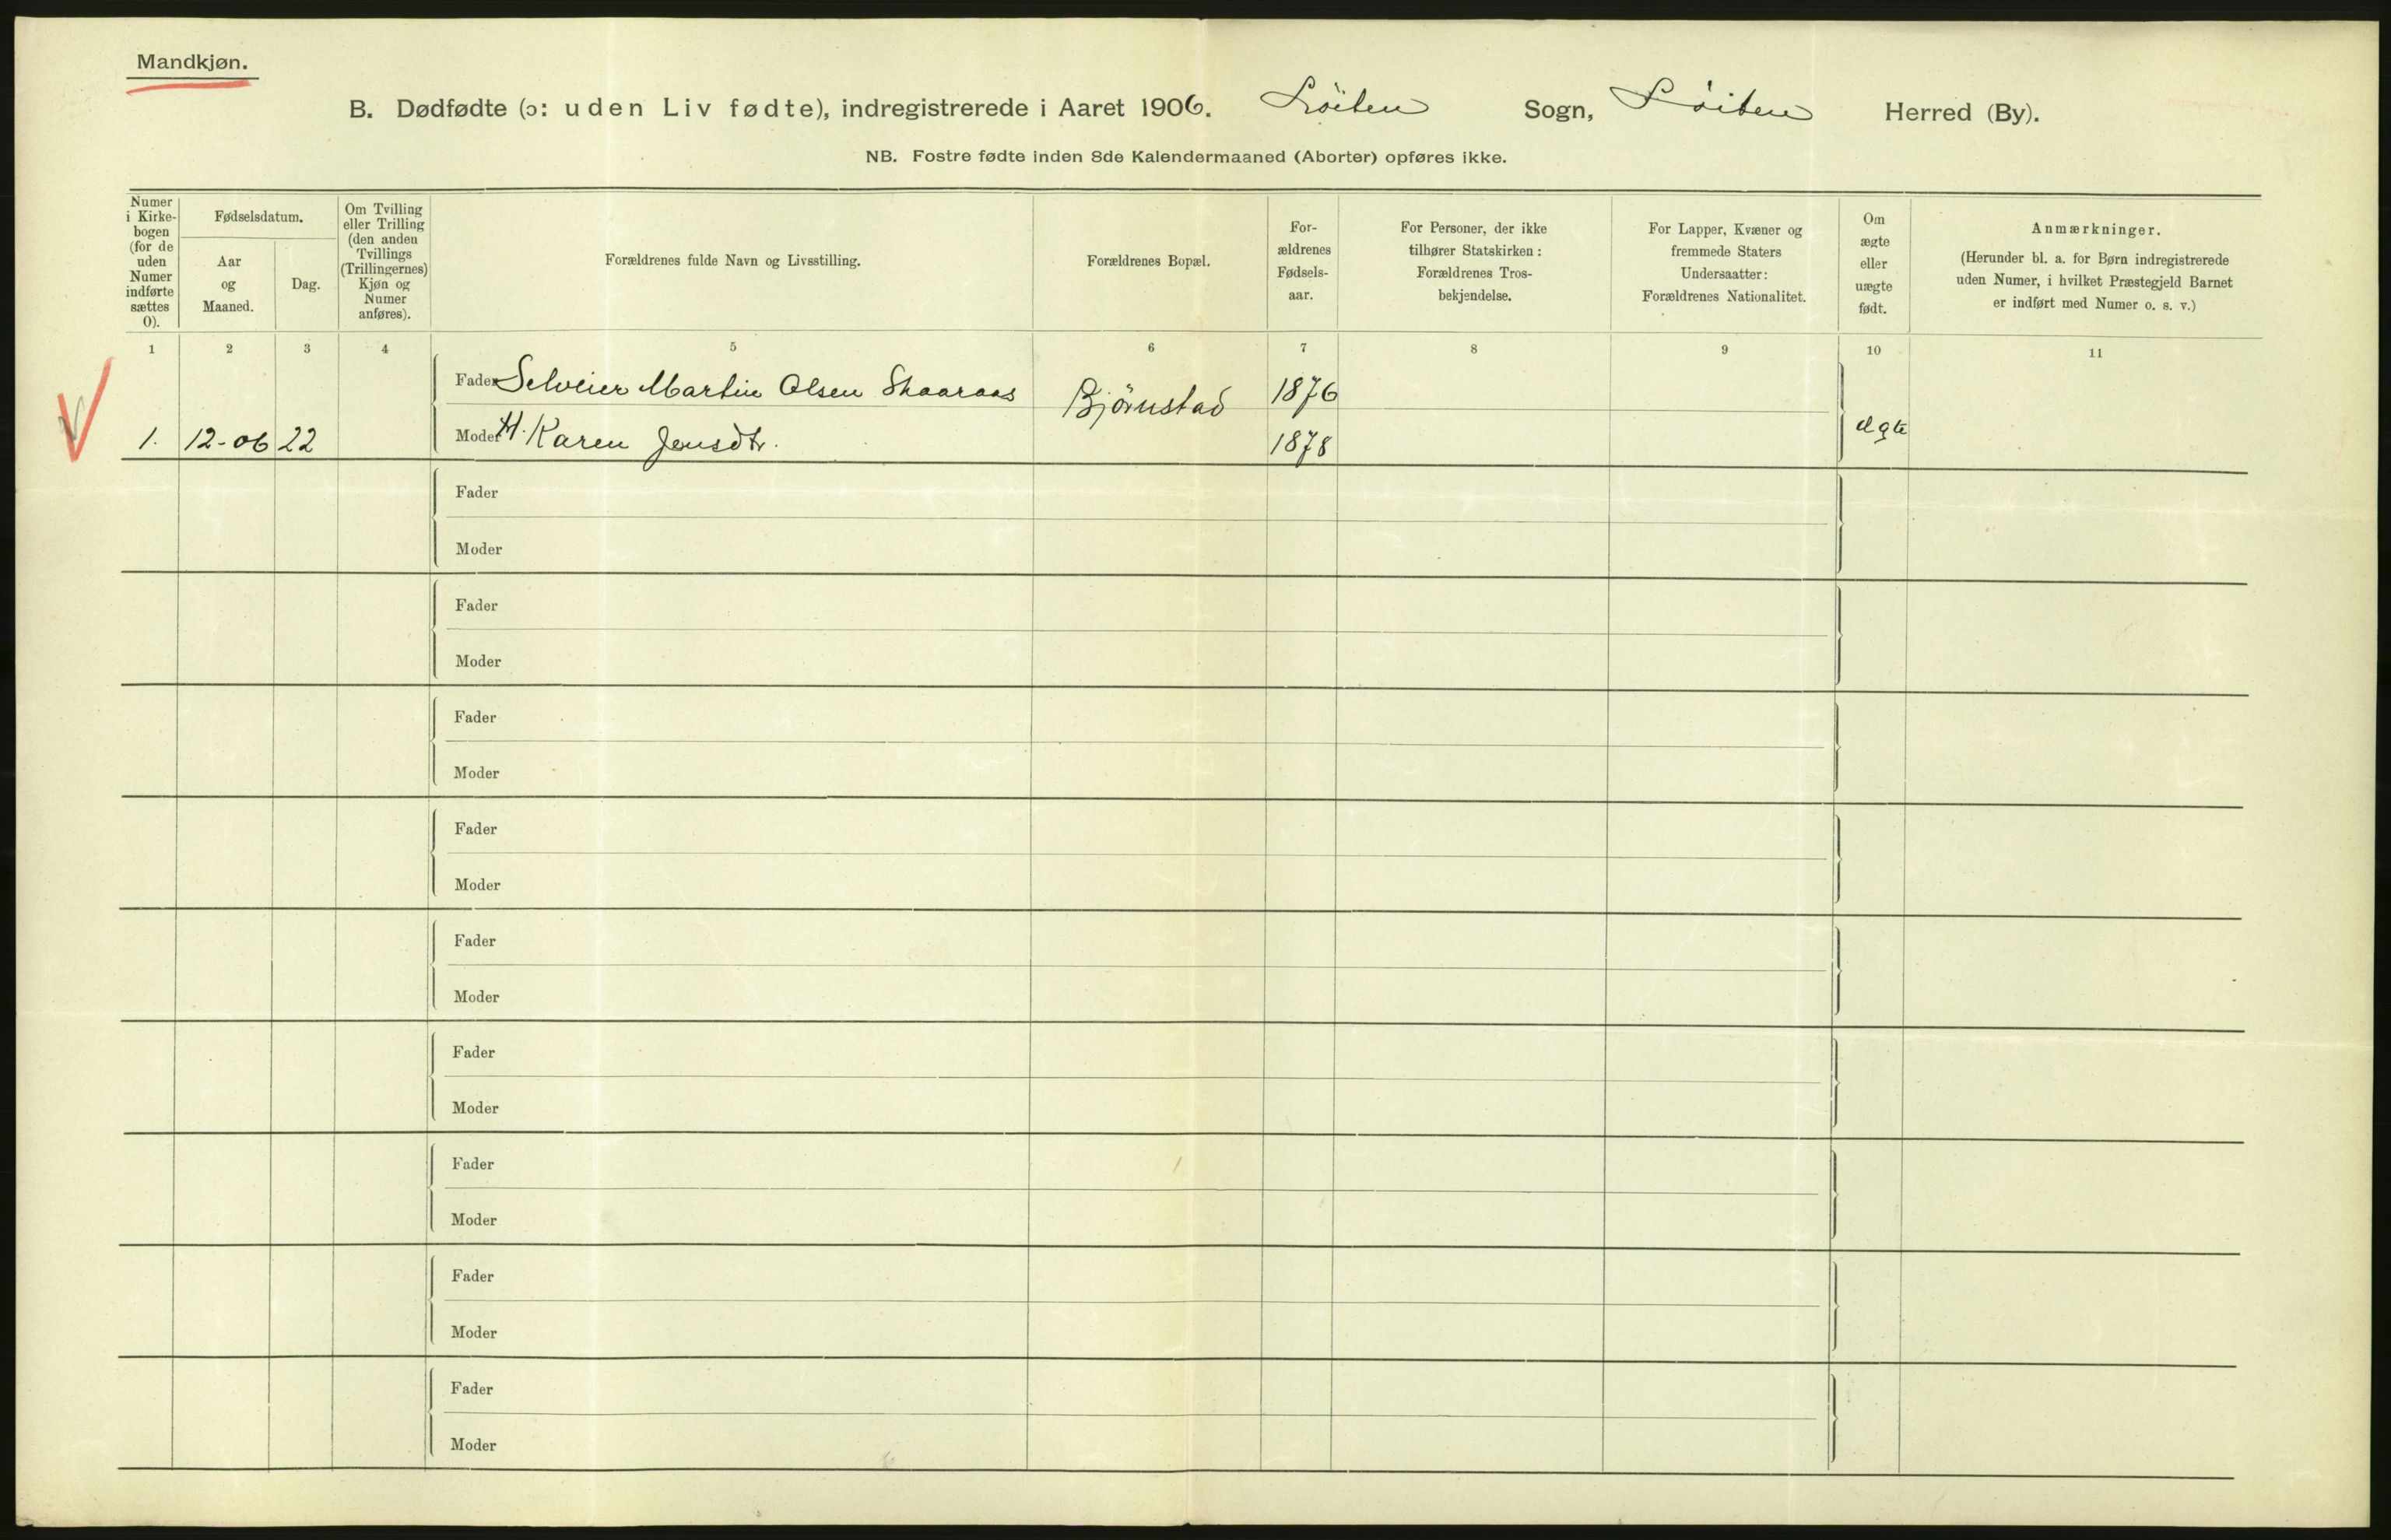 Mandkjøn.
B. Dødfødte (ɔ: uden Liv fødte), indregistrerede i Aaret 1906. Löiten Sogn, Löiten Herred (By).
NB. Fostre fødte inden 8de Kalendermaaned (Aborter) opføres ikke.
Numer
i Kirke-
bogen
(for de
uden
Numer
indførte
sættes
0).
Fødselsdatum.
Aar
og
Maaned.
Dag.
Om Tvilling
eller Trilling
(den anden
Tvillings
(Trillingernes)
Kjøn og
Numer
anføres).
Forældrenes fulde Navn og Livsstilling.
Forældrenes Bopæl.
For-
ældrenes
Fødsels-
aar.
For Personer, der ikke
tilhører Statskirken:
Forældrenes Tros-
bekjendelse.
For Lapper, Kvæner og
fremmede Staters
Undersaatter:
Forældrenes Nationalitet.
Om
ægte
eller
uægte
født.
Anmærkninger.
(Herunder bl. a. for Børn indregistrerede
uden Numer, i hvilket Præstegjeld Barnet
er indført med Numer o. s. v.)
1 2 3 4 5 6 7 8 9 10 11
Fader Selveier Martin Olsen Skaaraas Bjørnstad 1876
1. 12-06 22 Moder H. Karen Jensdtr. 1878 ægte
Fader
Moder
Fader
Moder
Fader
Moder
Fader
Moder
Fader
Moder
Fader
Moder
Fader
Moder
Fader
Moder
Fader
Moder